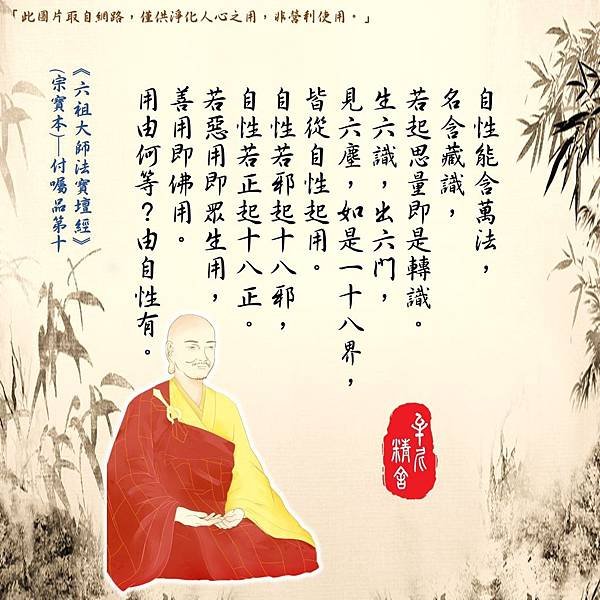 「此圖片取自網路，僅供淨化人心之用，非營利使用。」
自性能含萬法，
名含藏識，
若起思量即是轉識。
生六識，出六門，
見六塵，如是一十八界，
皆從自性起用。
自性若邪起十八邪，
自性若正起十八正。
若惡用即眾生用，
善用即佛用。
用由何等？由自性有。
《六祖大師法寶壇經》
(宗寶本)—付囑品第十
精舍